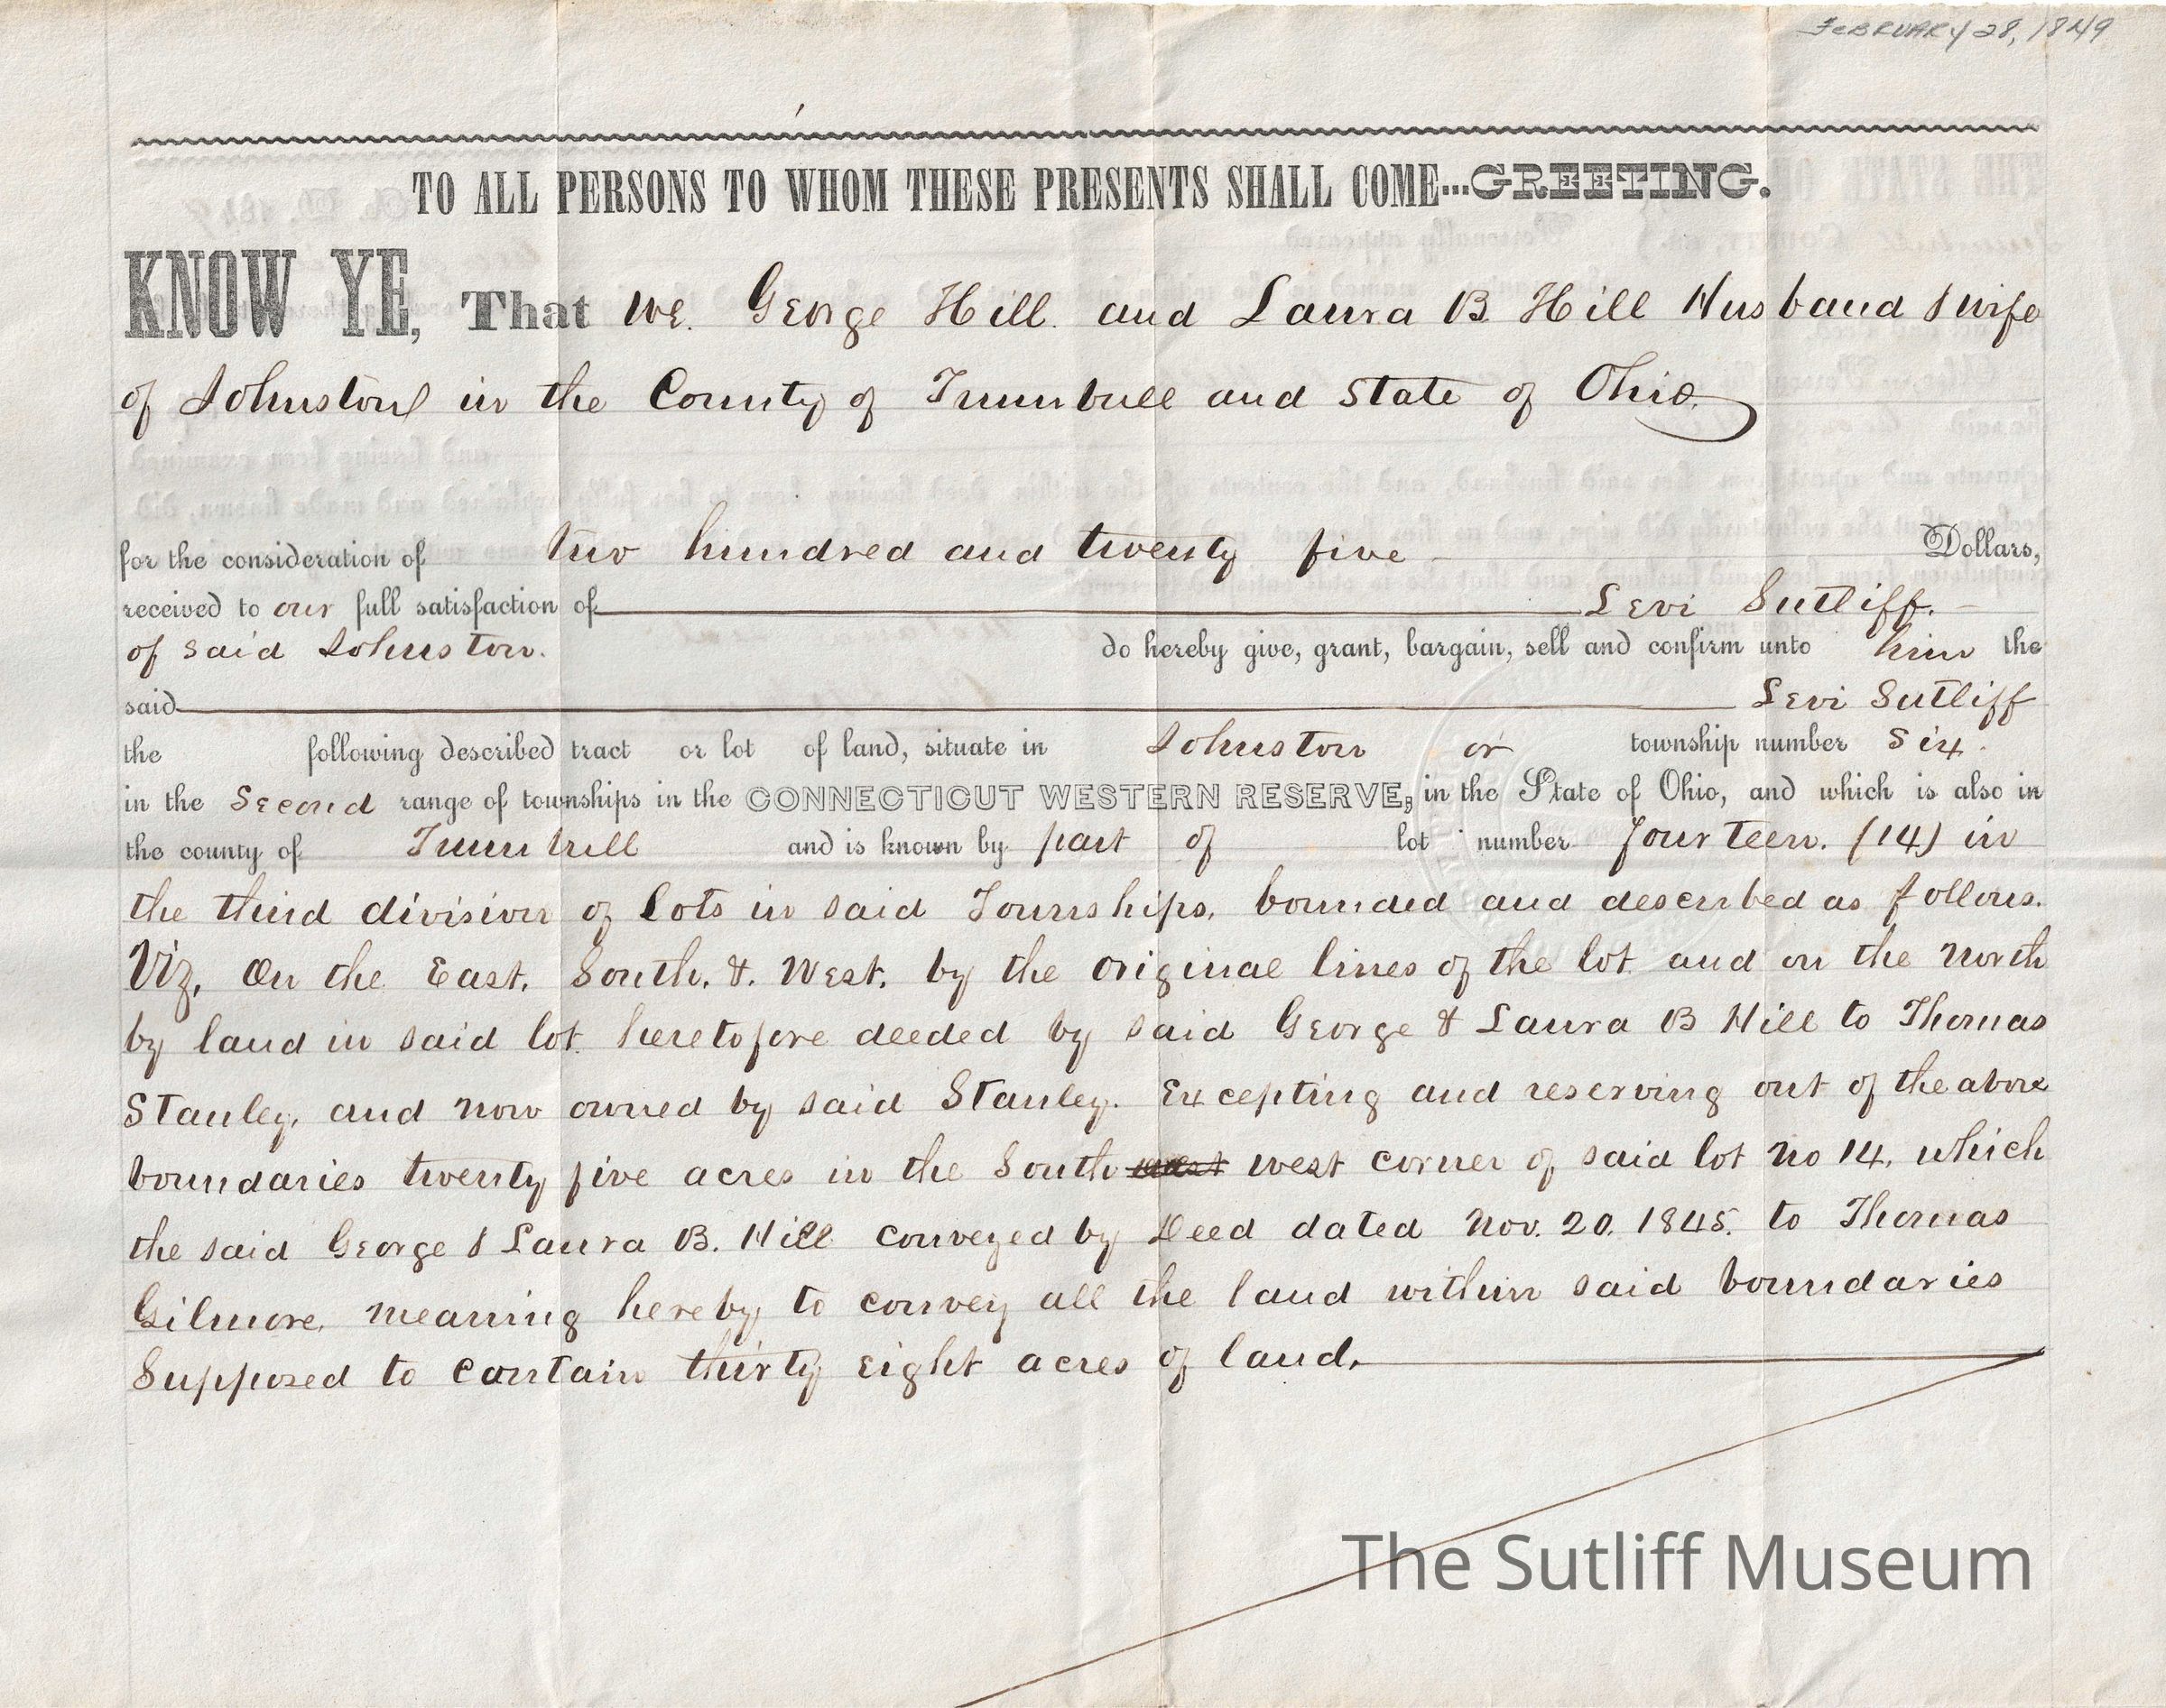 FEBRUARY 28, 1849
TO ALL PERSONS TO WHOM THESE PRESENTS SHALL COME...GREETING.
KNOW YE, That we. George Hill. and Laura B. Hill Husband & wife
of Johnston in the County of Trumbull and State of Ohio.
for the consideration of two hundred and twenty five Dollars,
received to our full satisfaction of Levi Sutliff.
of said Johnston. do hereby give, grant, bargain, sell and confirm unto him the
said Levi Sutliff
the following described tract or lot of land, situate in Johnston or township number Six.
in the Second range of townships in the CONNECTICUT WESTERN RESERVE, in the State of Ohio, and which is also in
the county of Trumbull and is known by part of lot number fourteen. (14) in
the third division of Lots in said Townships, bounded and described as follows.
Viz, On the East, South, &. West, by the original lines of the lot and on the North
by land in said lot heretofore deeded by said George & Laura B Hill to Thomas
Stanley, and now owned by said Stanley. Excepting and reserving out of the above
boundaries twenty five acres in the South west corner of said lot No 14, which
the said George & Laura B. Hill conveyed by Deed dated Nov. 20. 1845. to Thomas
Gilmore, meaning hereby to convey all the land within said boundaries
Supposed to contain thirty eight acres of land.
The Sutliff Museum